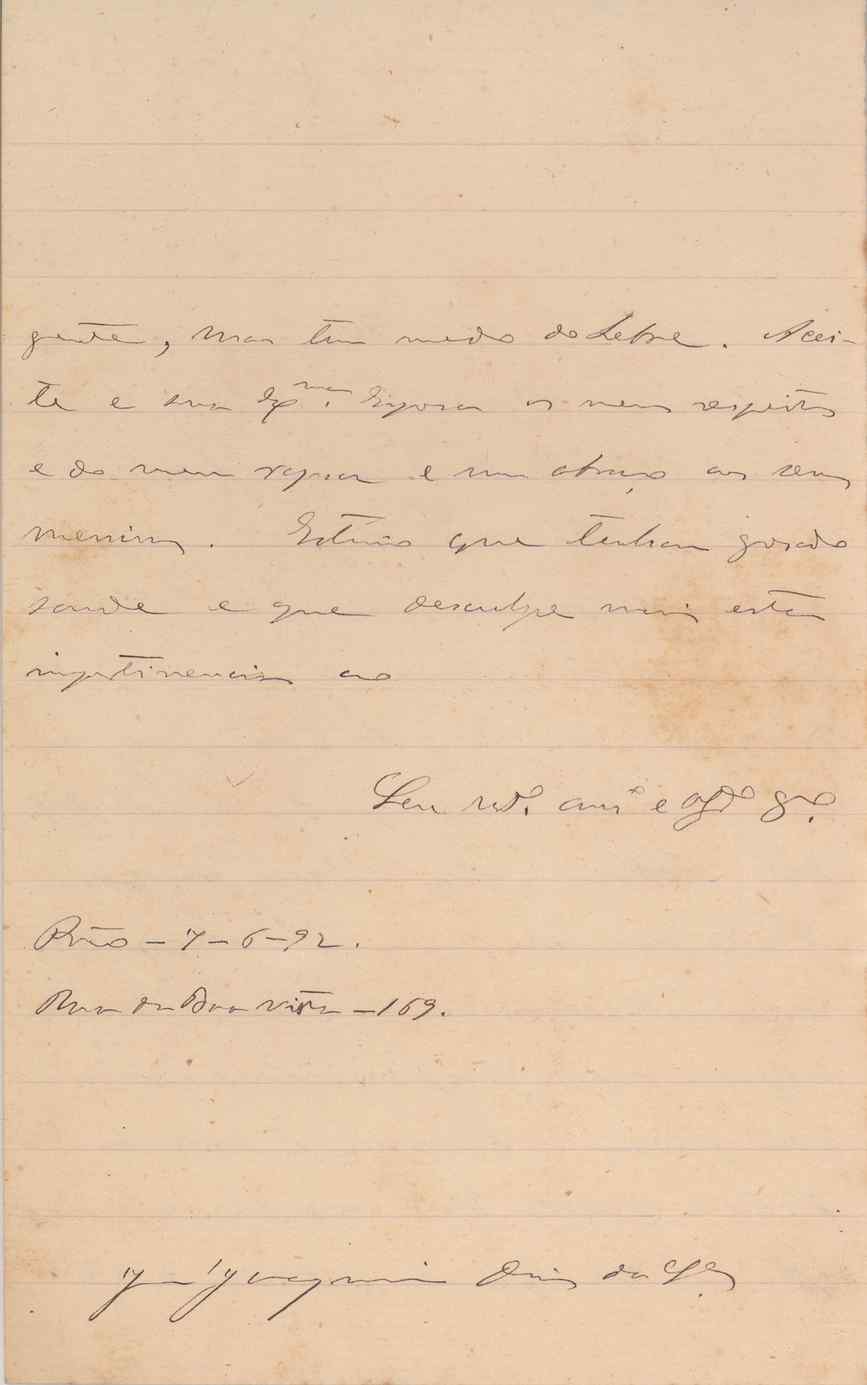 gente, mas tem medo do Lebre. Acei-
te e sua Exma. Esposa os meus respeitos
e do meu rapaz e um abraço aos seus
meninos. Estimo que tenham gosado
saude e que desculpe mais esta
impertinencia ao
Seu amo e
Porto - 7-6-92.
Rua da Boa vista - 169.
Joaquim Dias da